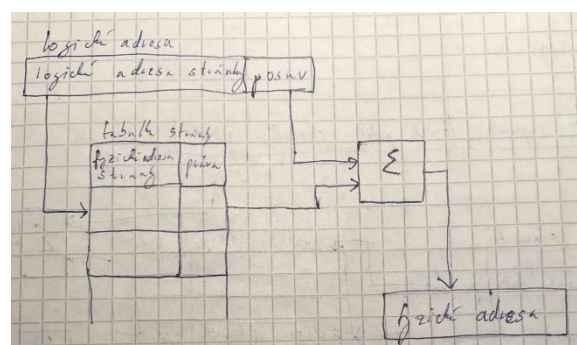 logická adresa
logická adresa stránky posuv
tabulka stránky
fyzická adresa práva
stránky
Σ
fyzická adresa